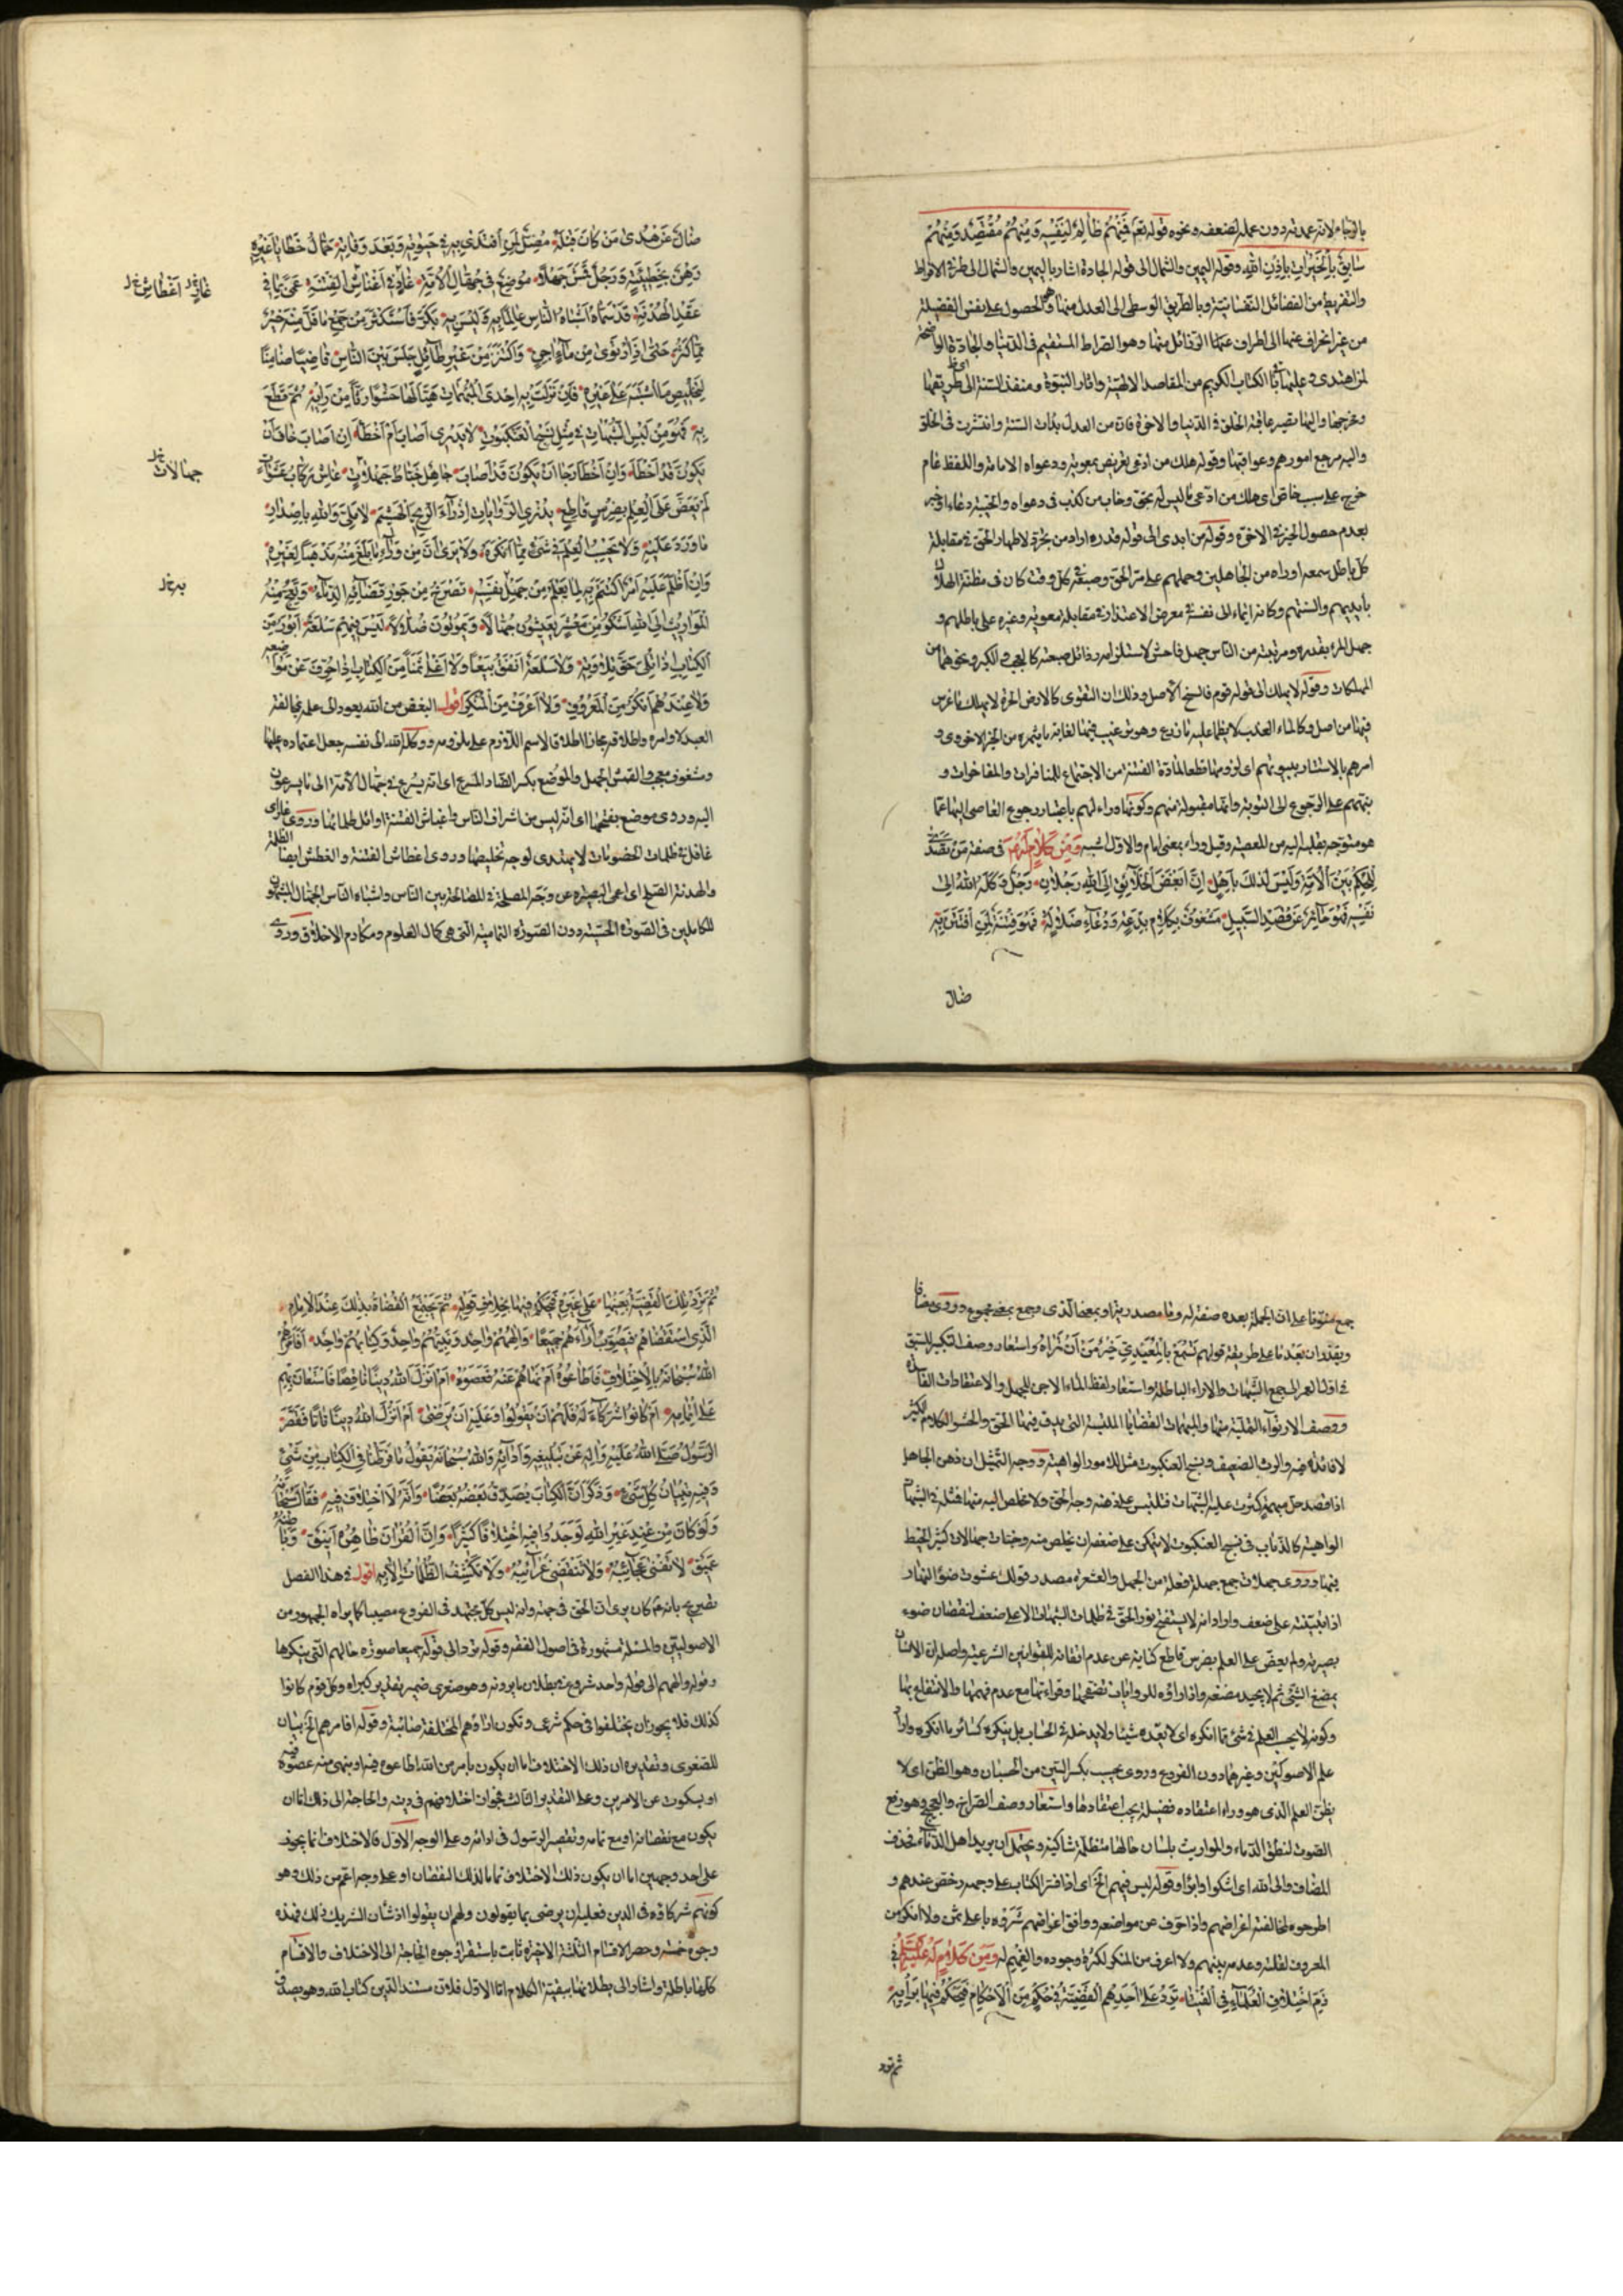 بالرجاء لانه عمدته دون عمله لضعفه ونحوه قوله تعالى فَمِنْهُمْ ظَالِمٌ لِنَفْسِهِ وَمِنْهُمْ مُقْتَصِدٌ وَمِنْهُمْ
سَابِقٌ بِالْخَيْرَاتِ بِاِذْنِ اللهِ وقوله اليمين والشمال الى قوله الجادة اشار باليمين والشمال الى طرفى الافراط
والتفريط من الفضائل النفسانية وبالطريق الوسطى الى العدل منها وهو الحصول على نفس الفضيلة
من غير انحراف عنها الى اطراف عنها الرذائل منها وهو الصراط المستقيم فى الدنيا والجادة الواضحة
لمن اهتدى وعليها باقى الكتاب الكريم من المقاصد الالهية واثار النبوة ومنفذ السنة الى طريقها
ومخرجها واليها مصير عاقبة الخلق فى الدنيا والاخرة فان من العدل بدات السنة وانتشرت فى الخلق
واليه مرجع امورهم وعواقبها وقوله هلك من ادعى تعريض بمعوية ودعواه الامامة واللفظ عام
خرج على سبب خاص اى هلك من ادعى ما ليس له بحق وخاب من كذب فى دعواه والخيبة دعاء او خبر
بعدم حصول الخير فى الاخرة وقوله من ابدى الى قوله قدره اراد من تجرد لاظهار الحق فى مقابلة
كل باطل سمعه او راه من الجاهلين وحملهم على مر الحق وصعبه فى كل وقت كان فى مظنة الهلاك
بايديهم والسنتهم وكانه ايماء الى نفسه فى معرض الاعتذار فى مقابلة معوية وغيره على باطلهم و
جهل المرء بقدره ومرتبته من الناس جهل فاحش لاستلزامه رذائل صعبة كالعجب والكبر ونحوهما من
المهلكات وقوله لا يهلك الى قوله قوم فالسنخ الاصل وذلك ان التقوى كالارض الحرة لا يهلك ما غرس
فيها من اصل وكالماء العذب لا يظما عليه ما زرع وهو
امرهم بالاستتار ببيوتهم اى لزومها قطعا لمادة الفتنة من الاجتماع للمنافرات والمفاخرات و
نبههم على الرجوع الى التوبة وانها مقبولة منهم وكونها وراءهم باعتبار رجوع العاصى اليها عما
هو متوجه بقلبه اليه من المعصية وقيل وراء بمعنى امام والاول اشبه وَمِنْ كَلَامٍ لَهُ ع فى صفة مَنْ يَتَصَدَّى
لِلْحُكْمِ بَيْنَ الْاُمَّةِ وَلَيْسَ لِذلِكَ بِاَهْلٍ اِنَّ اَبْغَضَ الْخَلَائِقِ اِلَى اللهِ رَجُلَانِ رَجُلٌ وَكَلَهُ اللهُ اِلى
نَفْسِهِ فَهُوَ جَائِرٌ عَنْ قَصْدِ السَّبِيلِ مَشْغُوفٌ بِكَلَامِ بِدْعَةٍ وَدُعَاءِ ضَلَالَةٍ فَهُوَ فِتْنَةٌ لِمَنِ افْتَتَنَ بِهِ
ضال
ضَالٌّ عَنْ هُدى مَنْ كَانَ قَبْلَهُ مُضِلٌّ لِمَنِ اقْتَدى بِهِ فى حَيوتِهِ وَبَعْدَ وَفَاتِهِ حَمَّالٌ خَطَايَا غَيْرِهِ
رَهْنٌ بِخَطِيئَتِهِ وَرَجُلٌ قَمَشَ جَهْلًا مُوضِعٌ فى جُهَّالِ الْاُمَّةِ غَادٍ فى اَغْبَاشِ الْفِتْنَةِ عَمٍ بِمَا فى
غاز خ ل اغطاش خ ل
عَقْدِ الْهُدْنَةِ قَدْ سَمَّاهُ اَشْبَاهُ النَّاسِ عَالِمًا وَلَيْسَ بِهِ بَكَّرَ فَاسْتَكْثَرَ مِنْ جَمْعٍ مَا قَلَّ مِنْهُ خَيْرٌ
مِمَّا كَثُرَ حَتّى اِذَا ارْتَوى مِنْ مَاءٍ اجِنٍ وَاكْتَنَزَ مِنْ غَيْرِ طَائِلٍ جَلَسَ بَيْنَ النَّاسِ قَاضِيًا ضَامِنًا
لِتَخْلِيصِ مَا الْتَبَسَ عَلى غَيْرِهِ فَاِنْ نَزَلَتْ بِهِ اِحْدَى الْمُبْهَمَاتِ هَيَّأَ لَهَا حَشْوًا رَثًّا مِنْ رَايِهِ ثُمَّ قَطَعَ
بِهِ فَهُوَ مِنْ لَبْسِ الشُّبُهَاتِ فى مِثْلِ نَسْجِ الْعَنْكَبُوتِ لَا يَدْرى اَصَابَ اَمْ اَخْطَأَ اِنْ اَصَابَ خَافَ اَنْ
يَكُونَ قَدْ اَخْطَأَ وَاِنْ اَخْطَأَ رَجَا اَنْ يَكُونَ قَدْ اَصَابَ جَاهِلٌ خَبَّاطُ جَهَلَاتٍ عَاشٍ رَكَّابُ عَشَوَاتٍ
جهالات خ ل
لَمْ يَعَضَّ عَلَى الْعِلْمِ بِضِرْسٍ قَاطِعٍ يُذْرِى الرِّوَايَاتِ اِذْرَاءَ الرِّيحِ الْهَشِيمَ لَا مَلِىٌّ وَاللهِ بِاِصْدَارِ
مَا وَرَدَ عَلَيْهِ وَلَا يَحْسَبُ الْعِلْمَ فى شَىْءٍ مِمَّا اَنْكَرَهُ وَلَا يَرى اَنَّ مِنْ وَرَاءِ مَا بَلَغَ مِنْهُ مَذْهَبًا لِغَيْرِهِ
وَاِنْ اَظْلَمَ عَلَيْهِ اَمْرٌ اكْتَتَمَ بِهِ لِمَا يَعْلَمُ مِنْ جَهْلِ نَفْسِهِ تَصْرُخُ مِنْ جَوْرِ قَضَائِهِ الدِّمَاءُ وَتَعِجُّ مِنْهُ
به خ ل
الْمَوَارِيثُ اِلَى اللهِ اَشْكُو مِنْ مَعْشَرٍ يَعِيشُونَ جُهَّالًا وَيَمُوتُونَ ضُلَّالًا لَيْسَ فِيهِمْ سِلْعَةٌ اَبْوَرَ مِنَ
الْكِتَابِ اِذَا تُلِىَ حَقَّ تِلَاوَتِهِ وَلَا سِلْعَةٌ اَنْفَقَ بَيْعًا وَلَا اَغْلى ثَمَنًا مِنَ الْكِتَابِ اِذَا حُرِّفَ عَنْ مَوَاضِعِهِ
وَلَا عِنْدَهُمْ اَنْكَرُ مِنَ الْمَعْرُوفِ وَلَا اَعْرَفُ مِنَ الْمُنْكَرِ اقول البغض من الله يعود الى علمه بمخالفة
العبد لاوامره واطلاقه مجاز اطلاقا لاسم اللازم على ملزومه ووكله الله الى نفسه جعل اعتماده عليها
ومشغوف معجب والقمش الجمع والموضع بكسر الضاد المسرع اى انه يسرع فى جهال الامة الى ما يسرعون
اليه وروى موضع بفتحها اى انه ليس من اشراف الناس واغباش الفتنة اوائل ظلماتها وروى غار اى
غافل فى ظلمات الخصومات لا يهتدى لوجه تخليصها وروى اغطاش الفتنة والغطش ايضا الظلمة
والهدنة الصلح اى اعمى البصيرة عن وجه المصلحة فى المصالحة بين الناس واشباه الناس الجهال المشبهون
للكاملين فى الصورة الحسية دون الصورة التمامية التى هى كمال العلوم ومكارم الاخلاق وروى
جمع منونا على ان الجملة بعده صفة له وما مصدرية او بمعنى الذى وجمع بمعنى مجموع وروى مضافا
ويقدر ان بعد ما على طريقة قولهم تَسْمَعُ بِالْمُعَيْدِى خَيْرٌ مِنْ اَنْ تَرَاهُ واستعار وصف التكبير للسبق
فى اول العمر الى جمع الشبهات والاراء الباطلة واستعار لفظ الماء الاجن للجهل والاعتقادات الفاسدة
ووصف الارتواء للتملى منها والمبهمات القضايا الملتبسة التى يدق فيها الحق والحشو الكلام الكثير
لا فائدة فيه والرث الضعيف ونسج العنكبوت مثل للامور الواهية ووجه التمثيل ان ذهن الجاهل
اذا قصد حل مبهم كثرت عليه الشبهات فتلتبس على ذهنه وجه الحق ولا تخلص اليه منها فمثله فى الشبهات
الواهية كالذباب فى نسج العنكبوت لا يتمكن على ضعفه ان يخلص منه وخباط جهالات كثير الخبط
فيها وروى جهلات جمع جهلة فعلة من الجهل والعشوة مصدر قولك عشوت ضوء النهار
اذا تبينته على ضعف واراد انه لا يستنتج نور الحق فى ظلمات الشبهات الا على ضعف لنقصان ضوء
بصيرته ولم يعض على العلم بضرس قاطع كناية عن عدم اتقانه للقوانين الشرعية واصله ان الانسان
يمضغ الشئ ثم لا يجيد مضغه واذراؤه للروايات تصفحها وقراءتها مع عدم فهمها والانتفاع بها
وكونه لا يحسب العلم فى شئ مما انكره اى لا يعده شيئا ولا يدخله فى الحساب بل ينكره كسائر ما انكره واراد
علم الاصوليين وغيرهما دون الفروع وروى يحسب بكسر السين من الحسبان وهو الظن اى لا
يظن العلم الذى هو وراء اعتقاده فضيلة يجب اعتقادها واستعار وصف الصراخ والعجيج وهو رفع
الصوت لنطق الدماء والمواريث بلسان حالها متظلمة شاكية ويحتمل ان يريد اهل الدماء فحذف
المضاف والى الله اى اشكوا وابوا وقوله ليس فيهم الخ اى اذا فسر الكتاب على وجهه رخص عندهم و
اطرحوه لمخالفته اغراضهم واذا حرف عن مواضعه ووافق اغراضهم شروه باعلى ثمن ولا انكر من
المعروف لقلته وعدمه بينهم ولا اعرف من المنكر لكثرة وجوده والفهم له وَمِنْ كَلَامٍ لَهُ عَلَيْهِ السَّلَم فى
ذَمِّ اخْتِلَافِ الْعُلَمَاءِ فِى الْفُتْيَا تَرِدُ عَلى اَحَدِهِمُ الْقَضِيَّةُ فى حُكْمٍ مِنَ الْاَحْكَامِ فَيَحْكُمُ فِيهَا بِرَأْيِهِ
ثم ترد
ثُمَّ تَرِدُ تِلْكَ الْقَضِيَّةُ بِعَيْنِهَا عَلى غَيْرِهِ فَيَحْكُمُ فِيهَا بِخِلَافِ قَوْلِهِ ثُمَّ يَجْتَمِعُ الْقُضَاةُ بِذلِكَ عِنْدَ الْاِمَامِ
الَّذِى اسْتَقْضَاهُمْ فَيُصَوِّبُ ارَاءَهُمْ جَمِيعًا وَاِلهُهُمْ وَاحِدٌ وَنَبِيُّهُمْ وَاحِدٌ وَكِتَابُهُمْ وَاحِدٌ اَفَاَمَرَهُمُ
اللهُ سُبْحَانَهُ بِالْاِخْتِلَافِ فَاَطَاعُوهُ اَمْ نَهَاهُمْ عَنْهُ فَعَصَوْهُ اَمْ اَنْزَلَ اللهُ دِينًا نَاقِصًا فَاسْتَعَانَ بِهِمْ
عَلى اِتْمَامِهِ اَمْ كَانُوا شُرَكَاءَ لَهُ فَلَهُمْ اَنْ يَقُولُوا وَعَلَيْهِ اَنْ يَرْضى اَمْ اَنْزَلَ اللهُ دِينًا تَامًّا فَقَصَّرَ
الرَّسُولُ صَلَّى اللهُ عَلَيْهِ وَالِهِ عَنْ تَبْلِيغِهِ وَاَدَائِهِ وَاللهُ سُبْحَانَهُ يَقُولُ مَا فَرَّطْنَا فِى الْكِتَابِ مِنْ شَىْءٍ
وَفِيهِ تِبْيَانُ كُلِّ شَىْءٍ وَذَكَرَ اَنَّ الْكِتَابَ يُصَدِّقُ بَعْضُهُ بَعْضًا وَاَنَّهُ لَا اخْتِلَافَ فِيهِ فَقَالَ سُبْحَانَهُ
وَلَوْ كَانَ مِنْ عِنْدِ غَيْرِ اللهِ لَوَجَدُوا فِيهِ اخْتِلَافًا كَثِيرًا وَاِنَّ الْقُرْانَ ظَاهِرُهُ اَنِيقٌ وَبَاطِنُهُ
عَمِيقٌ لَا تَفْنى عَجَائِبُهُ وَلَا تَنْقَضِى غَرَائِبُهُ وَلَا تُكْشَفُ الظُّلُمَاتُ اِلَّا بِهِ اقول فى هذا الفصل
تصريح بانه ع كان يرى ان الحق فى جهة وانه ليس كل مجتهد فى الفروع مصيبا كما يراه الجمهور من
الاصوليين والمسئلة مشهورة فى اصول الفقه وقوله ترد الى قوله جميعا صورة حالهم التى ينكرها
وقوله والههم الى قوله واحد شروع فى بطلان ما يرونه وهو صغرى ضمير تقدير كبراه وكل قوم كانوا
كذلك فلا يجوز ان يختلفوا فى حكم شرعى وتكون اراؤهم المختلفة صائبة وقوله افامرهم الخ بيان
للصغرى وتقديره ان ذلك الاختلاف اما ان يكون بامر من الله اطاعوه فيه او بنهى منه عصوه فيه
او بسكوت عن الامرين وعلى التقدير الثالث فجواز اختلافهم فى دينه والحاجة الى ذلك اما ان
يكون مع نقصانه او مع تمامه وتقصير الرسول فى ادائه وعلى الوجه الاول فالاختلاف انما يجوز
على احد وجهين اما ان يكون ذلك الاختلاف تماما لذلك النقصان او على وجه اعم من ذلك وهو
كونهم شركاؤه فى الدين فعليه ان يرضى بما يقولون ولهم ان يقولوا اذ شان الشريك ذلك فهذه
وجوه خمسة وحصر الاقسام الثلثة الاخيرة ثابت باستقراء وجوه الحاجة الى الاختلاف والاقسام
كلها باطلة واشار الى بطلانها ببقية الكلام اما الاول فلان مستند الدين كتاب الله وهو يصدق